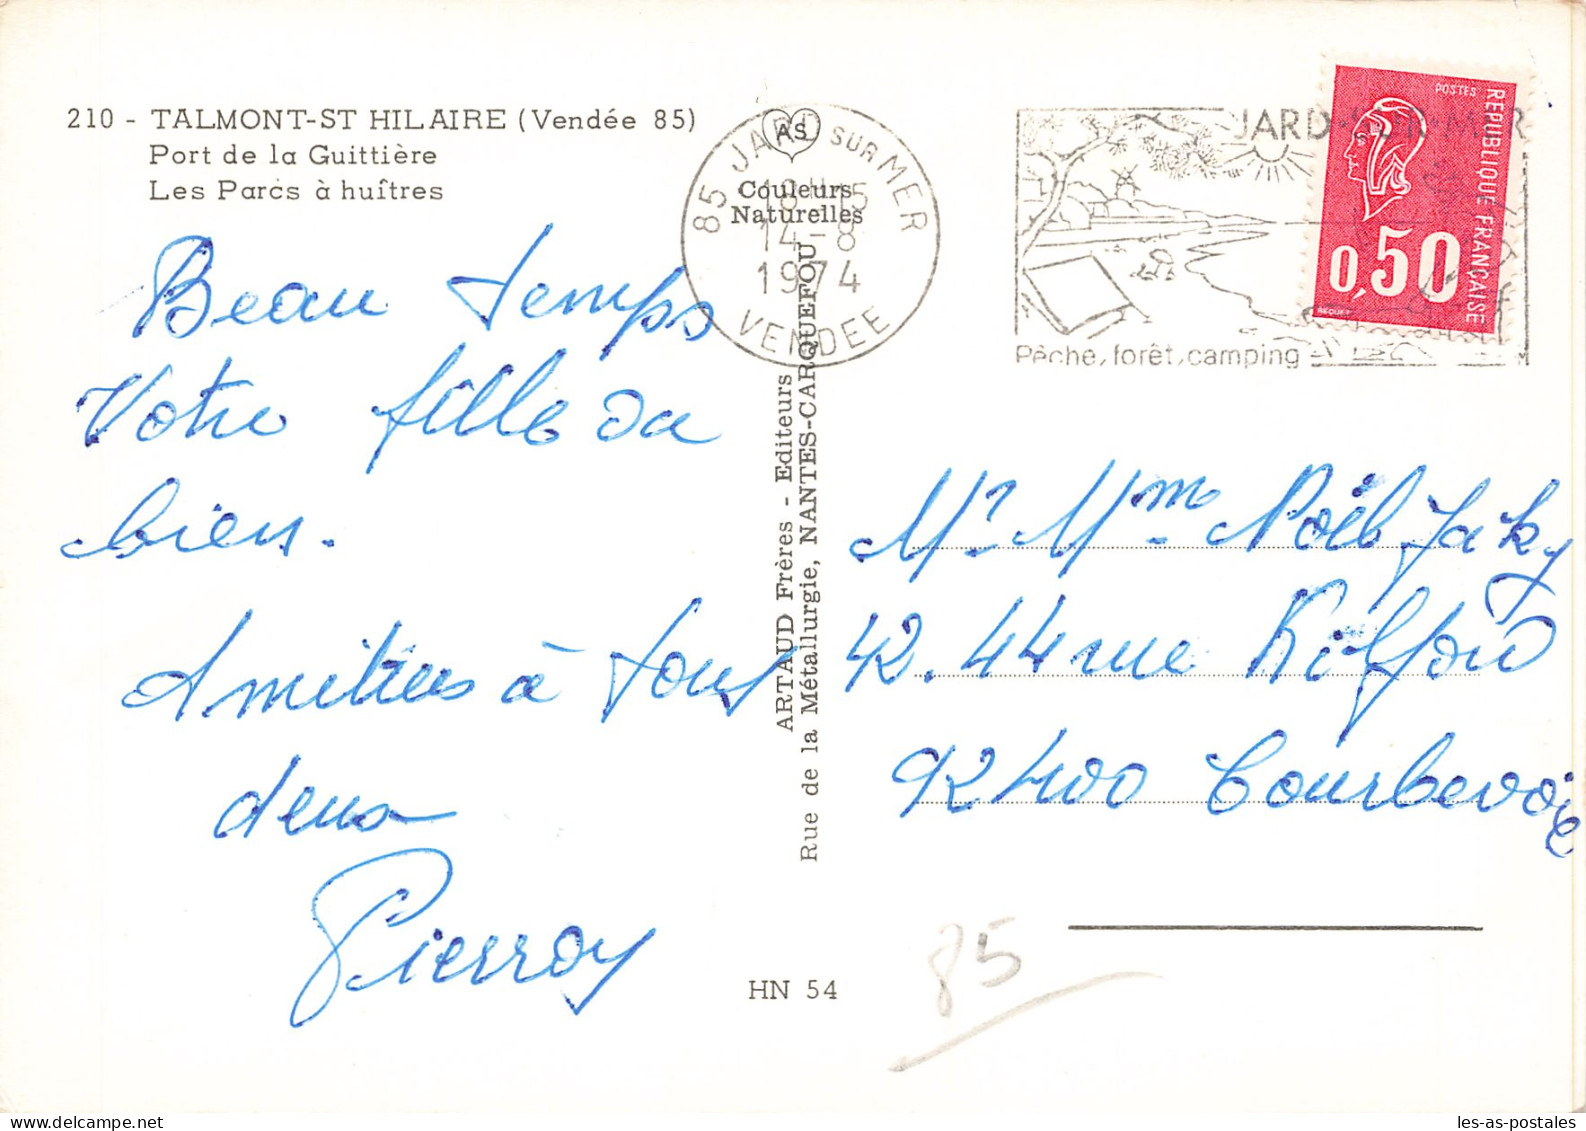 210 - TALMONT-ST HILAIRE (Vendée 85)
Port de la Guittière
Les Parcs à huîtres
Beau temps
Votre fille va
bien.
Amitiés à tous
deux
Pierroy
As
Couleurs
Naturelles
85 JARD SUR MER
18H15
14-8
1974
VENDEE
ARTAUD Frères - Editeurs
Rue de la Métallurgie, NANTES-CARQUEFOU
HN 54
JARD-SUR-MER
Pêche, forêt, camping
POSTES
REPUBLIQUE FRANÇAISE
0,50
BEQUET
Mr Mme Noël Jaky
42.44 rue Kilford
92400 Courbevoie
85
les-as-postales
delcampe.net